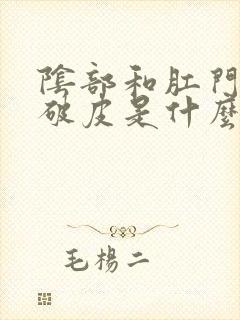 陰部和肛門
破皮是什麼
毛楊二